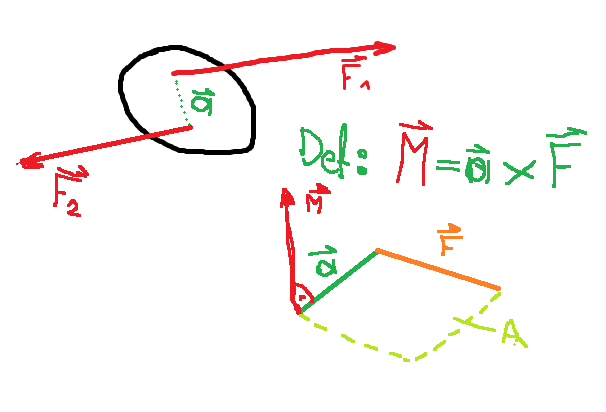 F⃗₁
a⃗
F⃗₂
Def: M⃗ = a⃗ × F⃗
M⃗
a⃗
F⃗
A